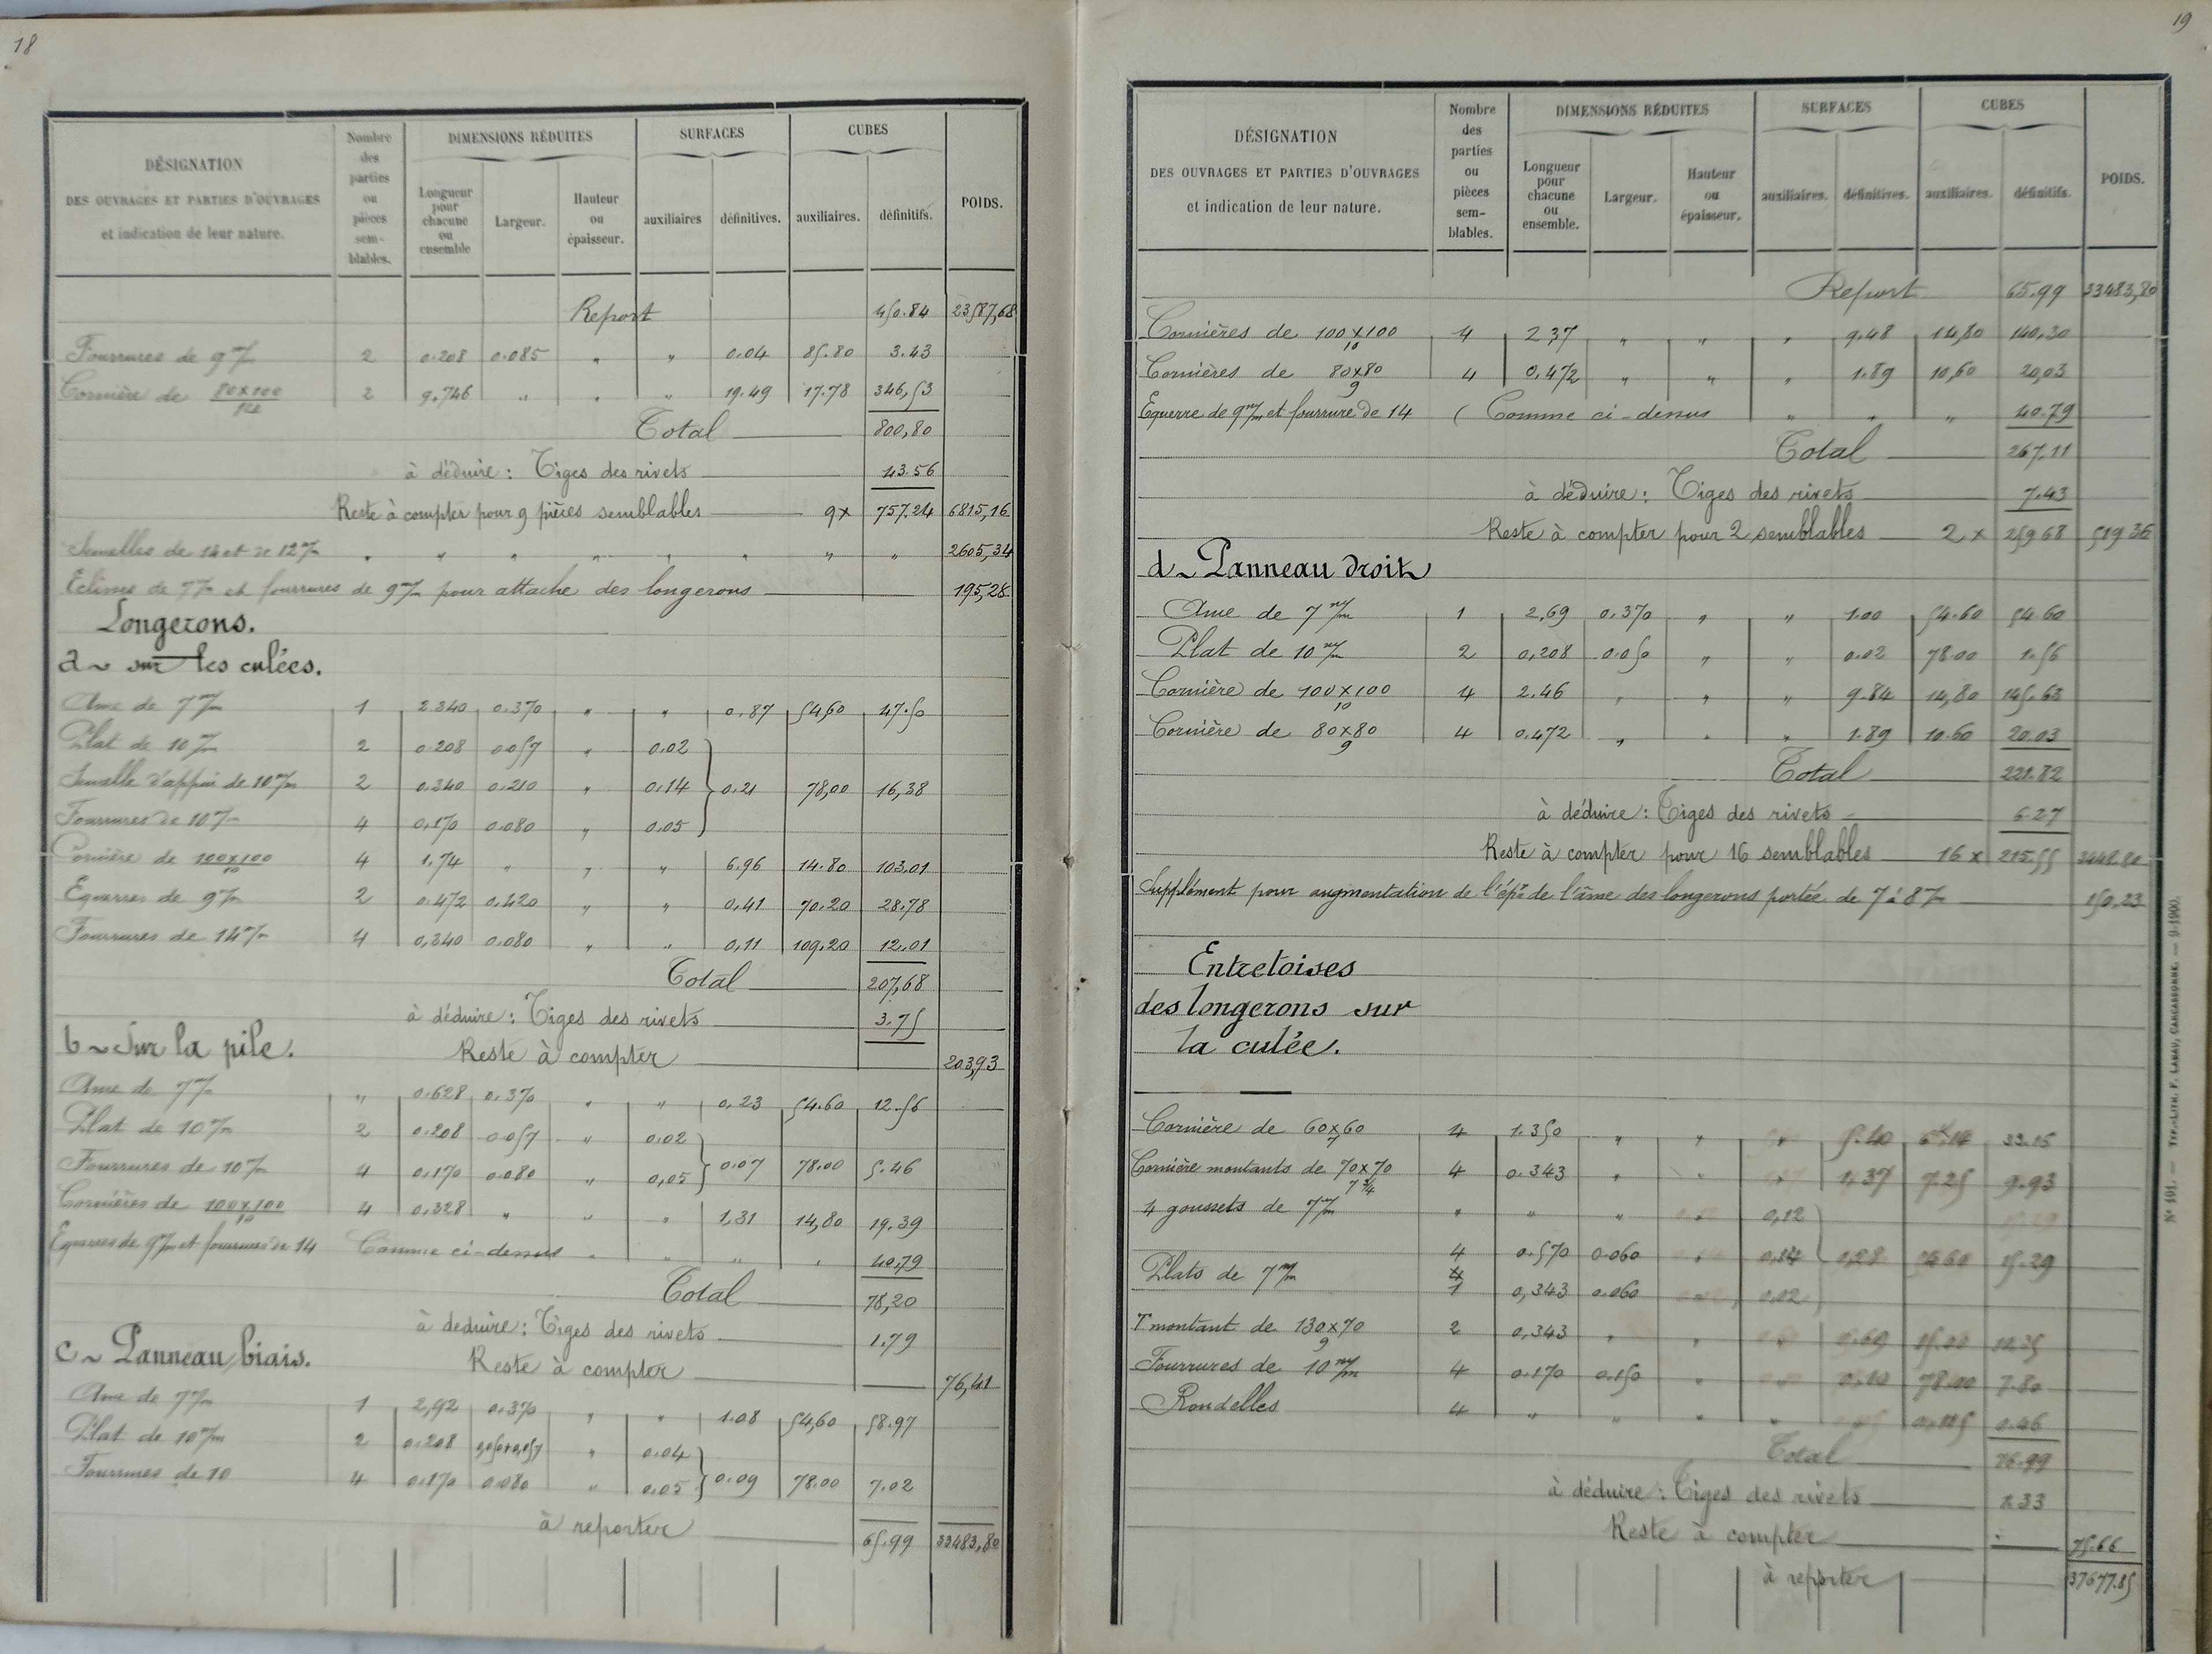 18
DÉSIGNATION
DES OUVRAGES ET PARTIES D'OUVRAGES
et indication de leur nature.
Nombre des parties ou pièces sem-blables.
DIMENSIONS RÉDUITES
Longueur pour chacune ou ensemble
Largeur.
Hauteur ou épaisseur.
SURFACES
auxiliaires
définitives.
CUBES
auxiliaires.
définitifs.
POIDS.
Report 450.84 23587,68
Fourrures de 9 m/m 2 0.208 0.085 " " 0.04 85.80 3.43
Cornière de 80x100/12 2 9.746 " " " 19.49 17.78 346,53
Total 800,80
à déduire : Tiges des rivets 43.56
Reste à compter pour 9 pièces semblables 9x 757.24 6815,16
Semelles de 14 et de 12 m/m " " " " " " " " 2605,34
Eclisses de 7 m/m et fourrures de 9 m/m pour attache des longerons 195,28
Longerons.
a ~ sur les culées.
Ame de 7 m/m 1 2.340 0.370 " " 0,87 54,60 47.50
Plat de 10 m/m 2 0.208 0.057 " 0.02
Semelle d'appui de 10 m/m 2 0.340 0.210 " 0.14 } 0.21 78,00 16,38
Fourrures de 10 m/m 4 0,170 0.080 " 0.05
Cornière de 100x100/10 4 1,74 " " " 6.96 14.80 103.01
Equerres de 9 m/m 2 0.472 0.420 " " 0,41 70.20 28.78
Fourrures de 14 m/m 4 0,340 0.080 " " 0,11 109.20 12.01
Total 207,68
à déduire : Tiges des rivets 3.75
b ~ Sur la pile. Reste à compter 203,93
Ame de 7 m/m " 0.628 0.370 " " 0,23 54.60 12.56
Plat de 10 m/m 2 0.208 0.057 " 0.02
Fourrures de 10 m/m 4 0.170 0.080 " 0,05 } 0.07 78.00 5.46
Cornières de 100x100/10 4 0.328 " " " 1,31 14,80 19.39
Equerres de 9 m/m et fourrures de 14 Comme ci-dessus " " " " 40,79
Total 78,20
à déduire : Tiges des rivets 1.79
c ~ Panneau biais. Reste à compter 76,41
Ame de 7 m/m 1 2,92 0.370 " " 1.08 54,60 58.97
Plat de 10 m/m 2 0.208 0,050+0,057 " 0.04
Fourrures de 10 4 0.170 0.080 " 0.05 } 0.09 78.00 7.02
à reporter 65.99 33483,80
19
DÉSIGNATION
DES OUVRAGES ET PARTIES D'OUVRAGES
et indication de leur nature.
Nombre des parties ou pièces sem-blables.
DIMENSIONS RÉDUITES
Longueur pour chacune ou ensemble.
Largeur.
Hauteur ou épaisseur.
SURFACES
auxiliaires.
définitives.
CUBES
auxiliaires.
définitifs.
POIDS.
Report 65.99 33483,80
Cornières de 100x100/10 4 2,37 " " " 9.48 14,80 140,30
Cornières de 80x80/9 4 0,472 " " " 1.89 10,60 20,03
Equerre de 9 m/m et fourrure de 14 ( Comme ci-dessus " " " 40.79
Total 267.11
à déduire : Tiges des rivets 7.43
Reste à compter pour 2 semblables 2 x 259 68 519 36
d ~ Panneau droit
Ame de 7 m/m 1 2,69 0.370 " " 1.00 54.60 54.60
Plat de 10 m/m 2 0,208 0.050 " " 0.02 78.00 1.56
Cornière de 100x100/10 4 2.46 " " " 9.84 14,80 145.63
Cornière de 80x80/9 4 0.472 " " " 1.89 10.60 20.03
Total 221.82
à déduire : Tiges des rivets 6.27
Reste à compter pour 16 semblables 16 x 215.55 3448.80
Supplément pour augmentation de l'épr de l'âme des longerons portée de 7 à 8 m/m 150,23
Entretoises
des longerons sur
la culée.
Cornière de 60x60/7 4 1.350 " " " 5.40 6.14 33.15
Cornière montants de 70x70/7 3/4 4 0.343 " " " 1,37 7.25 9.93
4 goussets de 7 m/m " " " " 0,12
4 0.570 0.060 " 0,14 } 0,28 54.60 15.29
Plats de 7 m/m 1 0,343 0.060 0.02
T montant de 130x70/9 2 0,343 " " 0.69 15.00 10.35
Fourrures de 10 m/m 4 0.170 0.150 " 0.10 78.00 7.80
Rondelles 4 " " " " 0.115 0.46
Total 76.99
à déduire : Tiges des rivets 1.33
Reste à compter 75.66
à reporter 37677.85
N° 101. — TYP.-LITH. F. LABAU, CARCASSONNE. — 9-1900.